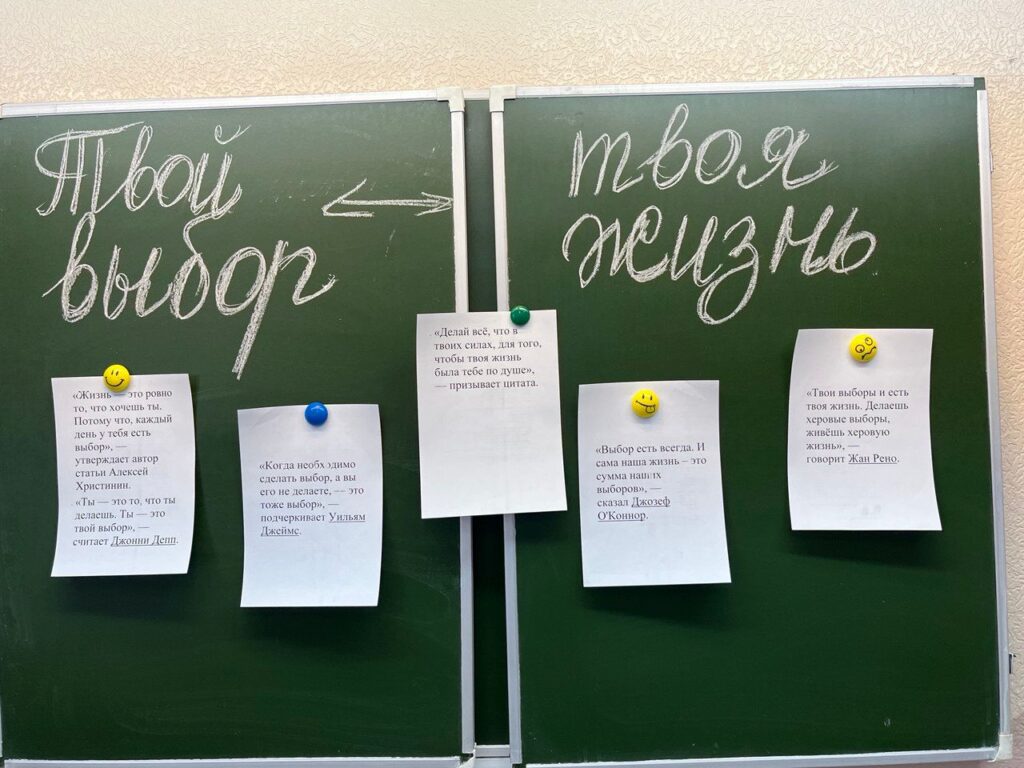 Твой
выбор
твоя
жизнь
«Жизнь — это ровно
то, что хочешь ты.
Потому что, каждый
день у тебя есть
выбор», —
утверждает автор
статьи Алексей
Христинин.
«Ты — это то, что ты
делаешь. Ты — это
твой выбор», —
считает Джонни Депп.
«Когда необх димо
сделать выбор, а вы
его не делаете, — это
тоже выбор», —
подчеркивает Уильям
Джеймс.
«Делай всё, что в
твоих силах, для того,
чтобы твоя жизнь
была тебе по душе»,
— призывает цитата.
«Выбор есть всегда. И
сама наша жизнь – это
сумма наших
выборов», —
сказал Джозеф
О'Коннор.
«Твои выборы и есть
твоя жизнь. Делаешь
херовые выборы,
живёшь херовую
жизнь», —
говорит Жан Рено.